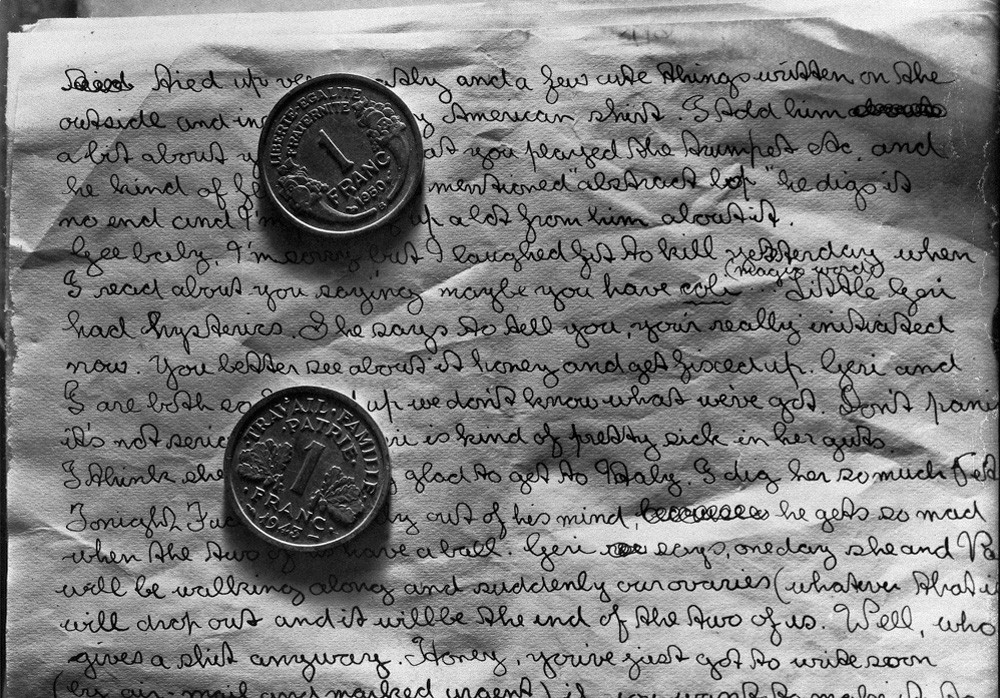 tied up ve tly and a few cute things written on the
outside and in y American shirt. I told him
a bit about y at you played the trumpet etc. and
he kind of mentioned "abstract bop" he digs it
no end and I'm up a lot from him about it.
Gee baby, I'm sorry but I laughed fit to kill yesterday when
(magic word)
I read about you saying maybe you have coli. Little Geri
had hysterics. She says to tell you, your really initiated
now. You better see about it honey and get fixed up. Geri and
I are both so up we don't know what we've got. Don't pani
it's not serio ri is kind of pretty sick in her guts.
I think she glad to get to Italy. I dig her so much
Tonight dy out of his mind, he gets so mad
when the two of us have a ball. Geri says, one day she and
will be walking along and suddenly our ovaries (whatever that i
will drop out and it will be the end of the two of us. Well, who
gives a shit anyway. Honey, you've just got to write soon
(by air-mail and marked urgent) if you want to make it to
LIBERTE EGALITE
FRATERNITE
1
FRANC
TRAVAIL FAMILLE
PATRIE
1
FRANC
1943